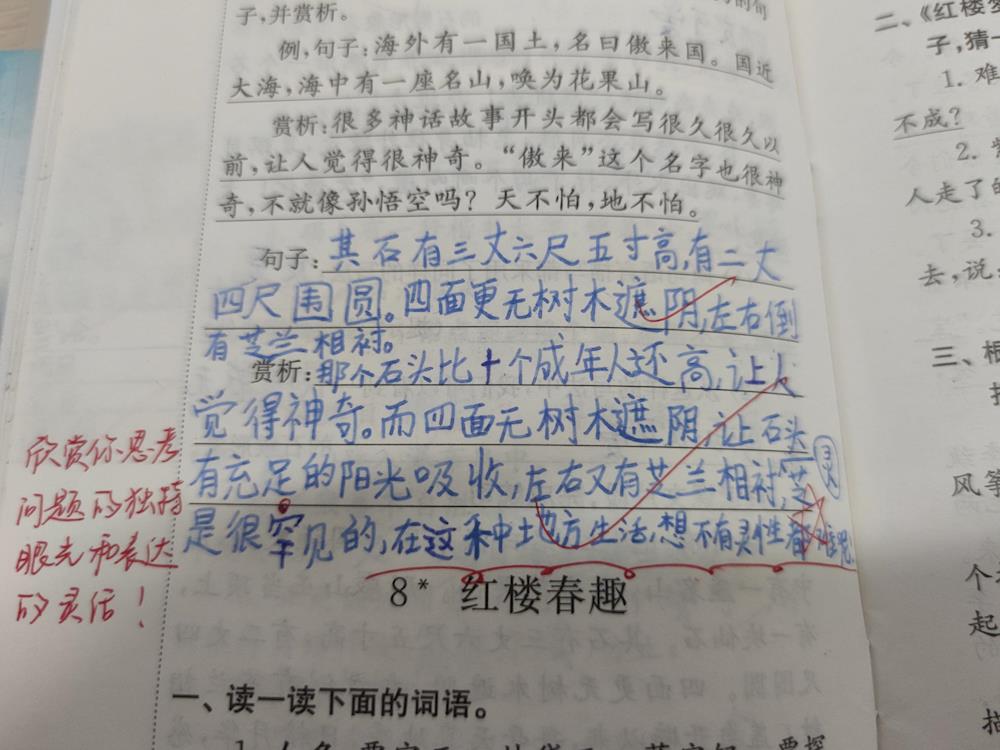 的句
子,并赏析。
例,句子:海外有一国土,名曰傲来国。国近
大海,海中有一座名山,唤为花果山。
赏析:很多神话故事开头都会写很久很久以
前,让人觉得很神奇。“傲来”这个名字也很神
奇,不就像孙悟空吗?天不怕,地不怕。
句子:其石有三丈六尺五寸高,有二丈
四尺围圆。四面更无树木遮阴,左右倒
有芝兰相衬。
赏析:那个石头比十个成年人还高,让人
觉得神奇。而四面无树木遮阴,让石头
有充足的阳光吸收,左右又有芝兰相衬,芝
是很罕见的,在这种地方生活,想不有灵性都难呢
欣赏你思考
问题的独特
眼光和表达
的灵活!
8* 红楼春趣
一、读一读下面的词语。
二、《红楼
子,猜一
1. 难
不成?
2.
人走了的
3.
去,说:
三、根
风筝
个
起